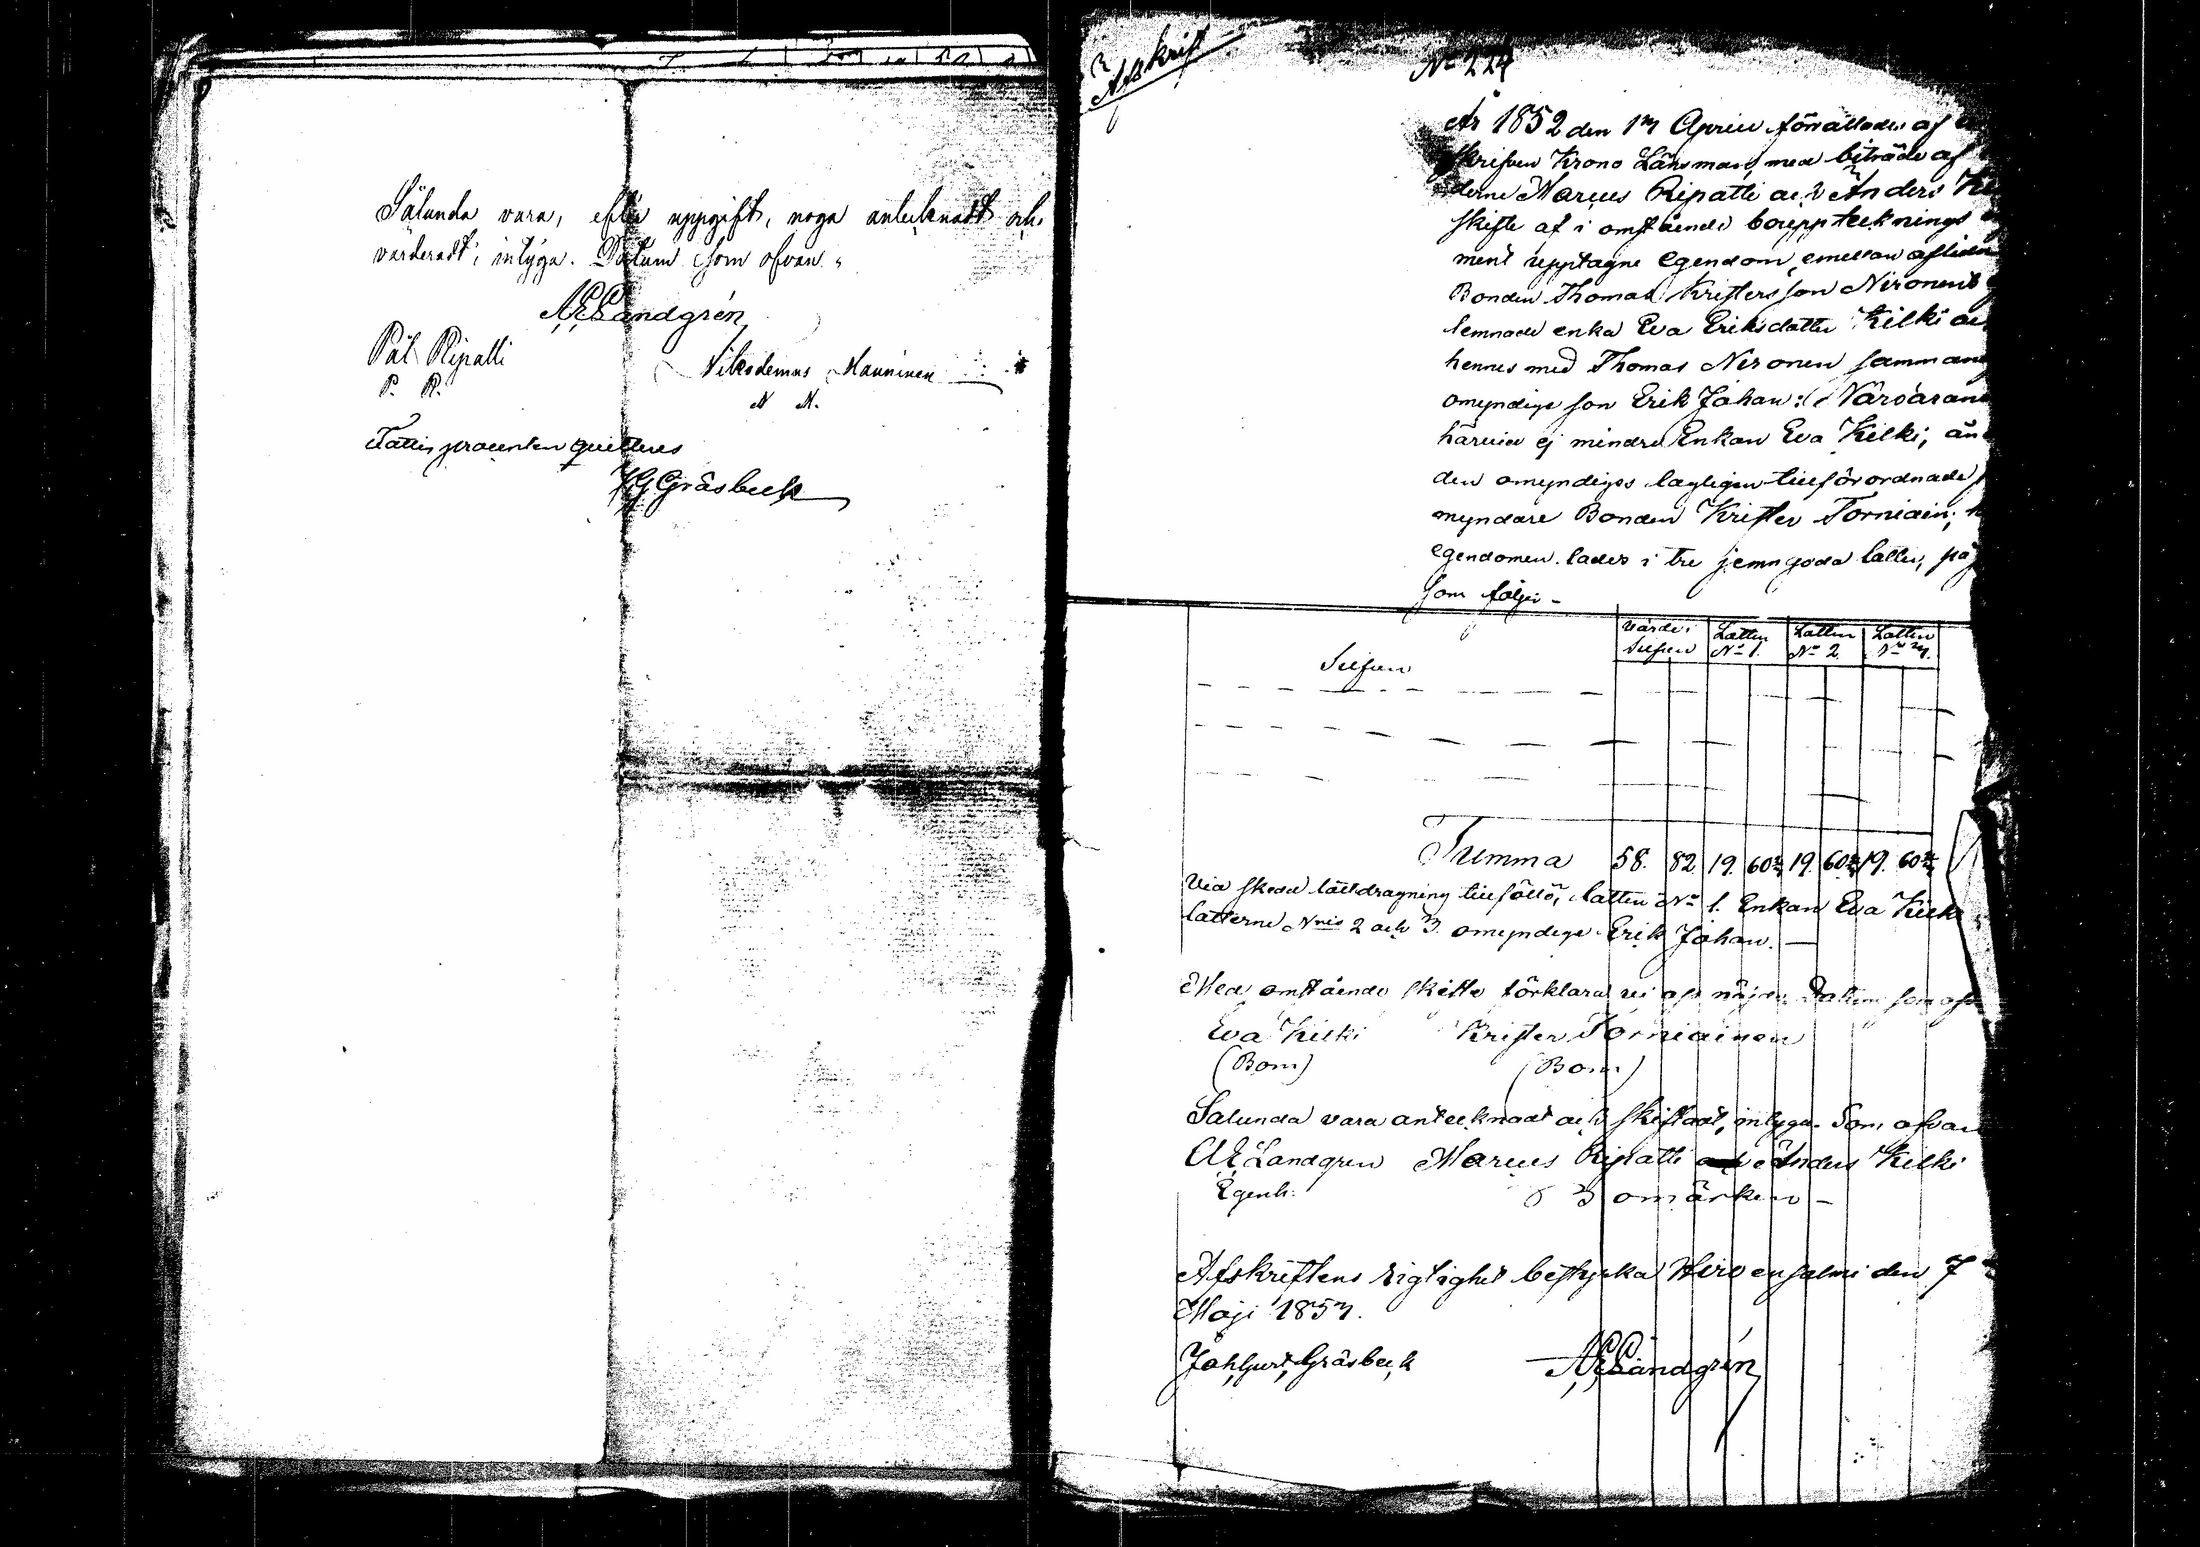 Sålunda vara, efter uppgift, noga antecknadt och
värderadt; intyga. Datum som ofvan.
A E Landgrén
Pål Ripatti
P. R.
Nikodemus Manninen
N M.
Fattig procenten quitteras
J G Gråsbeck
Afskrift
No 224
År 1852 den 13 April förrättades af
skrifven Krono Länsman, med biträde af
derne Marcus Ripatti och Anders Ki
skifte af i omstående bouppteknings
ment upptagne egendom, emellan aflidn
Bonden Thomas Kristersson Nironens
lemnade enka Eva Eriksdotter Kilki och
hennes med Thomas Nironen samman
omyndige son Erik Johan: Närvarande
härvid ej mindre Enkan Eva Kilki, än
den omyndiges lagligen tillförordnade
myndare Bonden Krister Torniain;
egendomen lades i tre jemngoda lotter, på
som följer -
Silfver
Värde i Silfver
Lotten No 1.
Lotten No 2.
Lotten No 3.
Summa 58. 82 19. 60⅔ 19. 60⅔ 19. 60⅔
Vid skedd lottdragning tillföllo, lotten No 1. Enkan Eva Kilki
lotterne Nris 2 och 3. omyndige Erik Johan. —
Med omstående skifte förklara vi oss nöjde. Datum som ofv
Eva Kilki Krister Torniainen
(Bom) (Bom)
Sålunda vara antecknadt och skiftadt, intyga. Som ofvan
A E Landgren Marcus Ripatti och Anders Kilki
Egenh. Bomärken -
Afskriftens rigtighet bestyrka Hirvensalmi den 7
Maji 1853.
Joh Gust Gråsbeck A E Landgrén